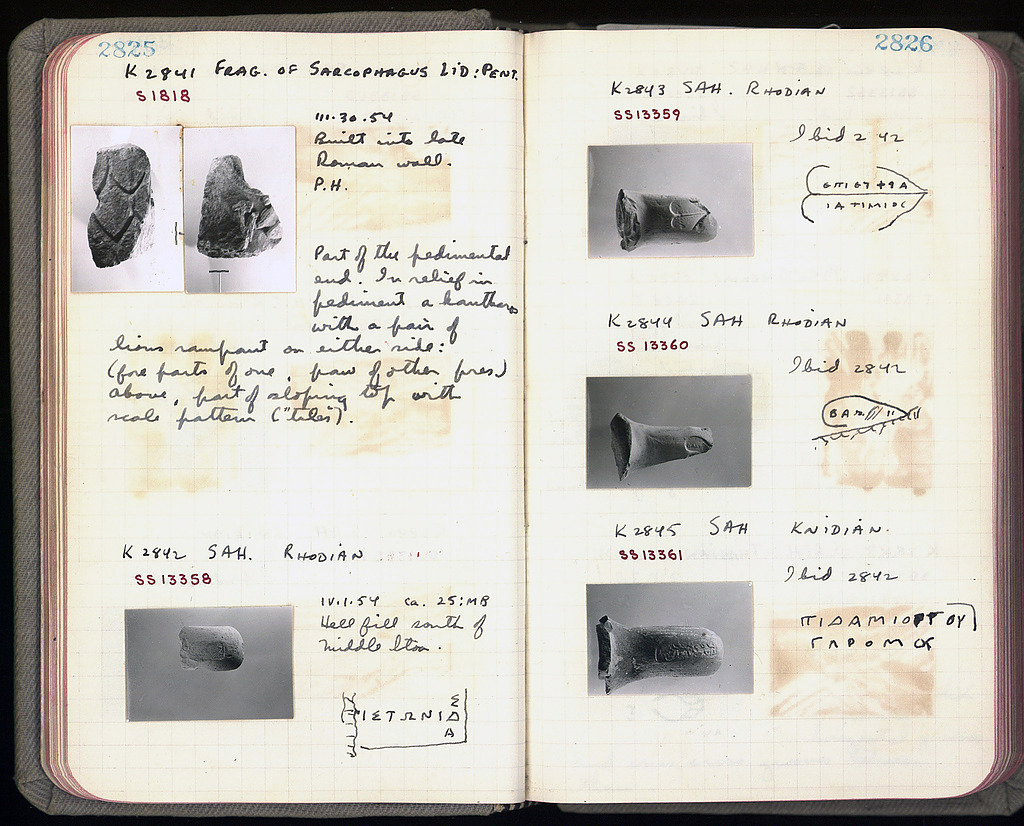 2825
K 2841 FRAG. OF SARCOPHAGUS LID: PENT.
S 1818
III.30.54
Built into late
Roman wall.
P.H.
Part of the pedimental
end. In relief in
pediment a kantharos
with a pair of
lions rampant on either side:
(fore parts of one, paw of other pres.)
above, part of sloping top with
scale pattern ("tiles").
K 2842 SAH. RHODIAN
SS 13358
IV.1.54 ca. 25:MB
Hell fill south of
Middle Stoa.
ΙΕΤΩΝΙΔ
Α
2826
K 2843 SAH. RHODIAN
SS 13359
Ibid 2842
ΙΑΤΙΜΙΟC
K 2844 SAH RHODIAN
SS 13360
Ibid 2842
K 2845 SAH KNIDIAN.
SS 13361
Ibid 2842